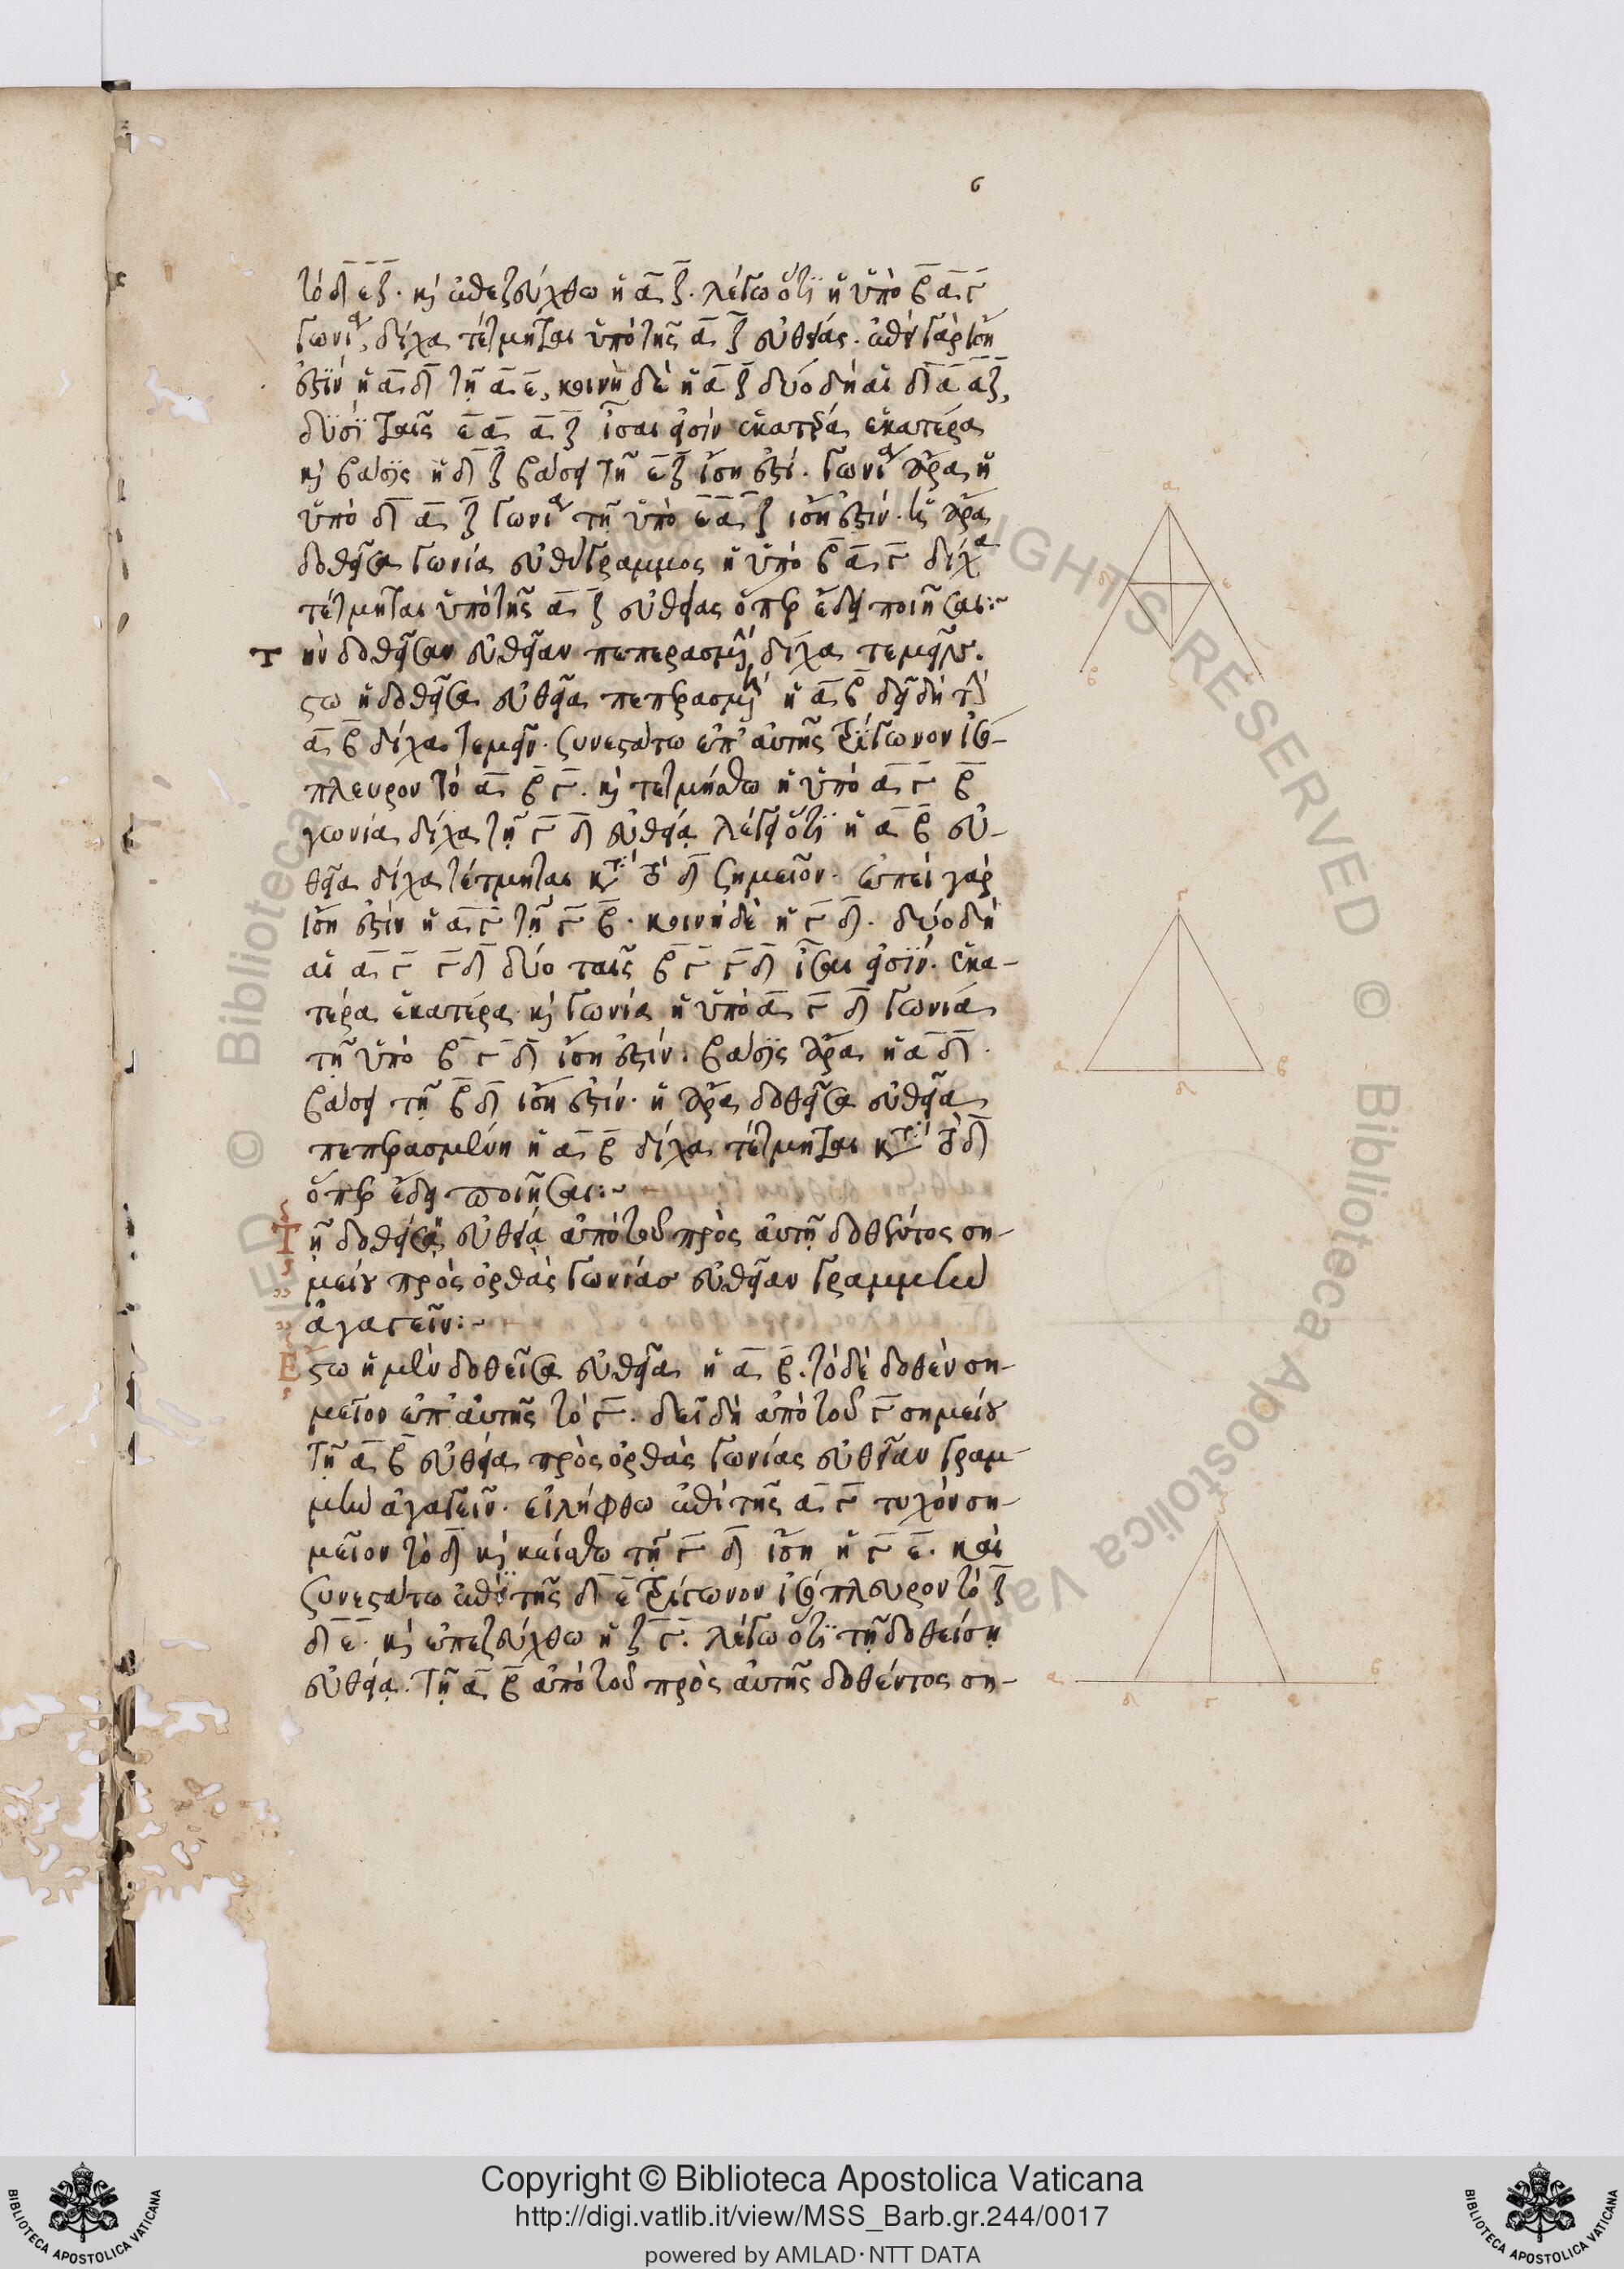 ϛ
τὸ δ̅ ε̅ζ̅. κὶ ἐπεζεύχθω ἡ α̅ ζ̅. λέγω ὅτϊ ἡ ὑπὸ β̅ α̅ γ̅
γωνία, δίχα τέτμηται ὑπὸ τῆς α̅ ζ̅ εὐθείας. ἐπεὶ γὰρ ἴση
ἐστϊν ἡ α̅ δ̅ τῇ α̅ ε̅, κοινὴ δὲ ἡ α̅ ζ̅ δύο δὴ αἱ δ̅ α̅ α̅ζ̅,
δυσϊ ταῖς ε̅ α̅ α̅ ζ̅ ἴσαι εἰσὶν ἑκατέρα ἑκατέρα
κὶ βάσϊς ἡ δ̅ ζ̅ βάσει τῇ ε̅ ζ̅ ἴση ἐστί. γωνία ἄρα ἡ
ὑπὸ δ̅ α̅ ζ̅ γωνία τῇ ὑπὸ ε̅ α̅ ζ̅ ἴση ἐστίν. ἡ ἄρα
δοθεῖσα γωνία εὐθύγραμμος ἡ ὑπὸ β̅ α̅ γ̅ δίχα
τέτμηται ὑπὸ τῆς α̅ ζ̅ εὐθείας ὅπερ ἔδει ποιῆσαι:~
Τ ὴν δοθεῖσαν εὐθεῖαν πεπερασμένην δίχα τεμεῖν.
στω ἡ δοθεῖσα εὐθεῖα πεπερασμένη ἡ α̅ β̅ δεῖ δὴ τὴν
α̅ β̅ δίχα τεμεῖν. συνεστάτω ἐπ' αὐτῆς τρίγωνον ἰσό-
πλευρον τὸ α̅ β̅ γ̅. κὶ τετμήσθω ἡ ὑπὸ α̅ γ̅ β̅
γωνία δίχα τῇ γ̅ δ̅ εὐθείᾳ λέγω ὅτϊ ἡ α̅ β̅ εὐ-
θεῖα δίχα τέτμηται κατὰ τὸ δ̅ σημεῖον. ἐπεὶ γὰρ
ἴση ἐστὶν ἡ α̅ γ̅ τῇ γ̅ β̅. κοινὴ δὲ ἡ γ̅ δ̅. δύο δὴ
αἱ α̅ γ̅ γ̅ δ̅ δύο ταῖς β̅ γ̅ γ̅ δ̅ ἴσαι εἰσὶν. ἑκα-
τέρα ἑκατέρα κὶ γωνία ἡ ὑπὸ α̅ γ̅ δ̅ γωνία
τῇ ὑπὸ β̅ γ̅ δ̅ ἴση ἐστίν. βάσϊς ἄρα ἡ α̅ δ̅.
βάσει τῇ β̅ δ̅ ἴση ἐστίν. ἡ ἄρα δοθεῖσα εὐθεῖα
πεπερασμένη ἡ α̅ β̅ δίχα τέτμηται κατὰ τὸ δ̅
ὅπερ ἔδει ποιῆσαι:~
Τ ῇ δοθείσῃ εὐθείᾳ ἀπὸ τοῦ πρὸς αὐτῇ δοθέντος ση-
μείου πρὸς ὀρθὰς γωνίας εὐθεῖαν γραμμὴν
ἀγαγεῖν:~
Ε στω ἡ μὲν δοθεῖσα εὐθεῖα ἡ α̅ β̅. τὸ δὲ δοθὲν ση-
μεῖον ἐπ' αὐτῆς τὸ γ̅. δεῖ δὴ ἀπὸ τοῦ γ̅ σημείου
τῇ α̅ β̅ εὐθεία πρὸς ὀρθὰς γωνίας εὐθεῖαν γραμ-
μὴν ἀγαγεῖν. εἰλήφθω ἐπὶ τῆς α̅ γ̅ τυχὸν ση-
μεῖον τὸ δ̅ κὶ κείσθω τῇ γ̅ δ̅ ἴση ἡ γ̅ ε̅. καὶ
συνεστάτω ἐπὶ τῆς δ̅ ε̅ τρίγωνον ἰσόπλευρον τὸ ζ̅
δ̅ ε̅. κὶ ἐπεζεύχθω ἡ ζ̅ γ̅. λέγω ὅτϊ τῇ δοθείσῃ
εὐθείᾳ. τῇ α̅ β̅ ἀπὸ τοῦ πρὸς αὐτῆς δοθέντος ση-
α
δ ε
β ζ γ
γ
α β
δ
ζ
α β
δ γ ε
Copyright © Biblioteca Apostolica Vaticana
http://digi.vatlib.it/view/MSS_Barb.gr.244/0017
powered by AMLAD·NTT DATA
BIBLIOTECA APOSTOLICA VATICANA
BIBLIOTECA APOSTOLICA VATICANA